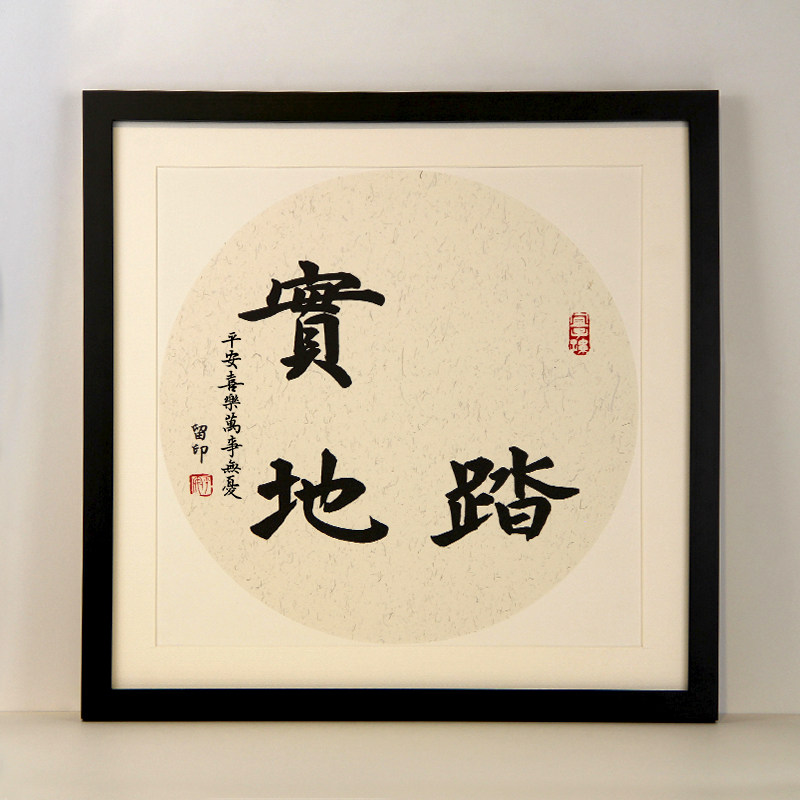 踏
實地
平安喜樂萬事無憂
留印